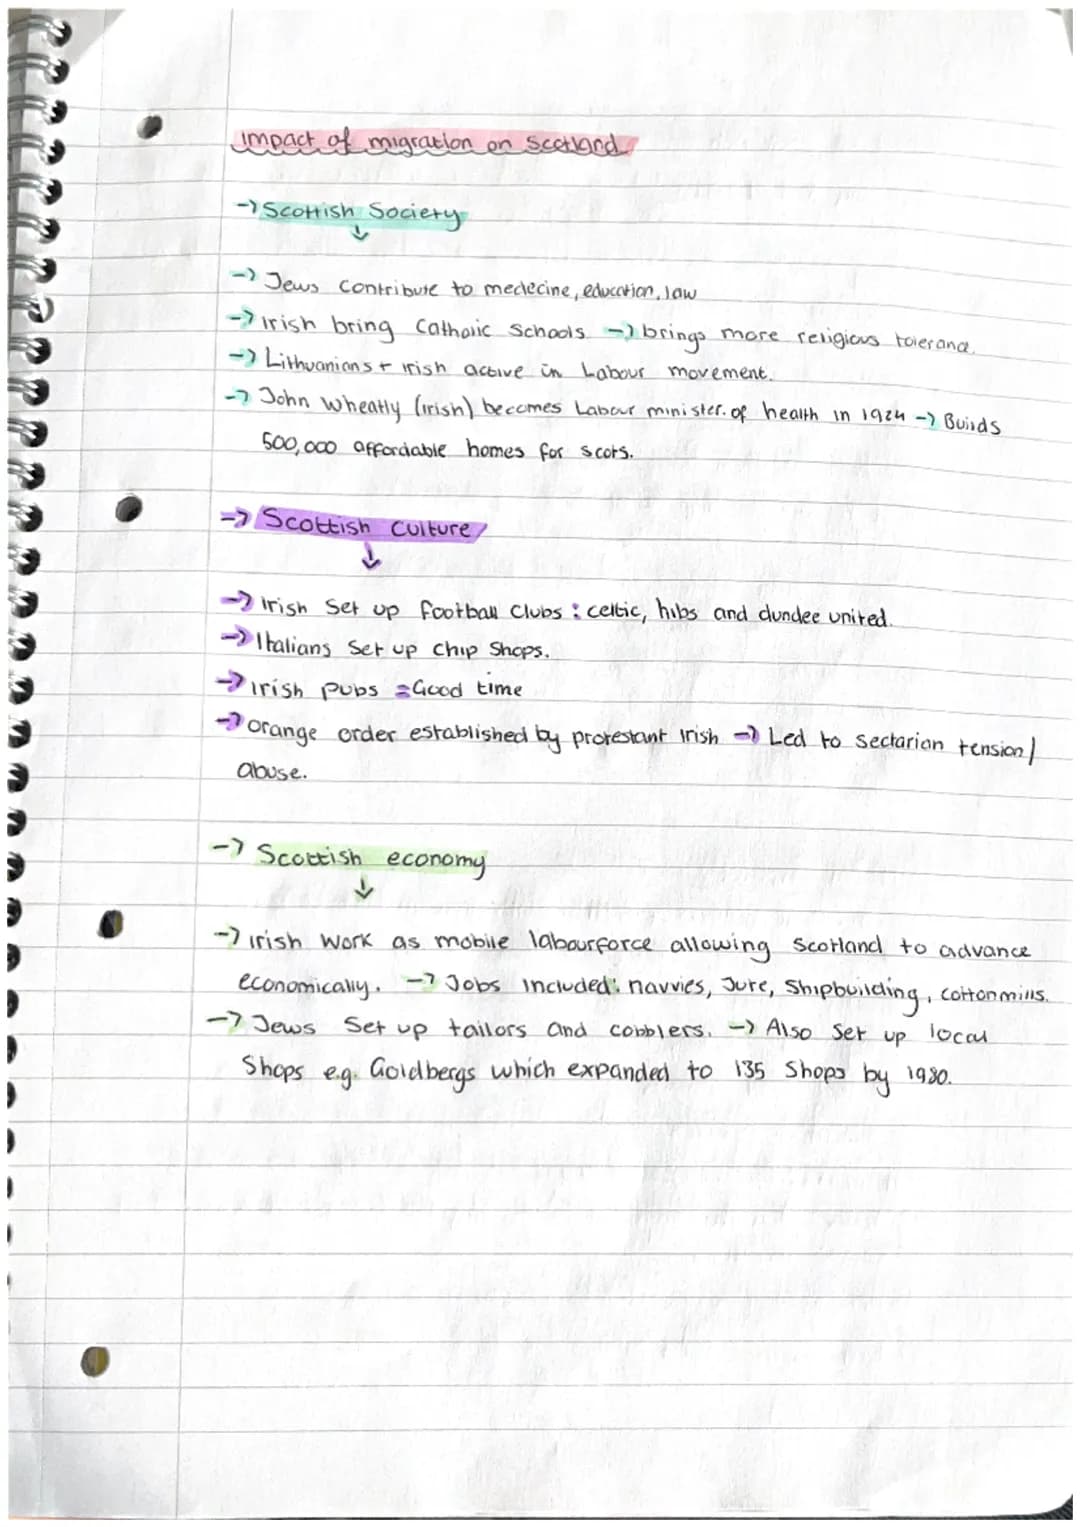 Impact of migration on Scotland
-> Scottish Society
↓
-> Jews contribute to medecine, education, law
-> Irish bring Catholic Schools -> brings more religious tolerance.
-> Lithuanians + Irish active in Labour movement.
-> John Wheatly (Irish) becomes Labour minister of health in 1924 -> Builds
500,000 affordable homes for scots.
=> Scottish Culture
↓
-> Irish set up football clubs : celtic, hibs and dundee united.
-> Italians Set up Chip Shops.
-> Irish pubs = Good time
-> Orange order established by protestant Irish -> Led to sectarian tension/
abuse.
-> Scottish economy
↓
-> Irish work as mobile labourforce allowing Scotland to advance
economically. -> Jobs included: navvies, Jute, Shipbuilding, cotton mills.
-> Jews Set up tailors and cobblers. -> Also set up local
Shops e.g. Goldbergs which expanded to 135 Shops by 1980.